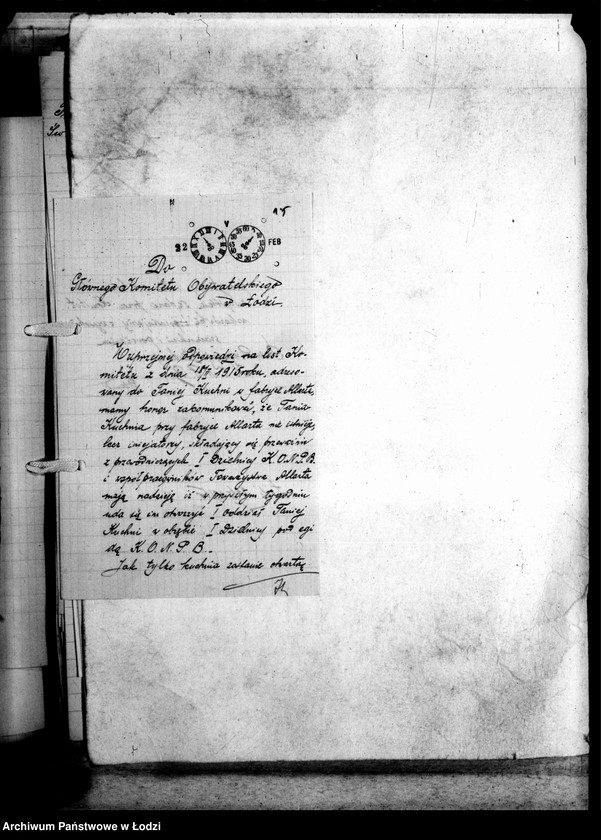 15
22 FEB
Do
Głównego Komitetu Obywatelskiego
w Łodzi.
W uprzejmej odpowiedzi na list Ko-
mitetu z dnia 18/I 1915 roku, adreso-
wany do Taniej Kuchni w fabryce Allarta,
mamy honor zakomunikować, że Tania
Kuchnia przy fabryce Allarta nie istnieje,
lecz inicjatorzy, składający się przeważnie
z przewodniczących I Dzielnicy K.O.N.P.B.
i współpracowników Towarzystwa Allarta
mają nadzieję iż w przyszłym tygodniu
uda się im otworzyć I oddział Taniej
Kuchni w obrębie I Dzielnicy pod egi
dą K.O.N.P.B.-
Jak tylko kuchnia zostanie otwartą
Archiwum Państwowe w Łodzi